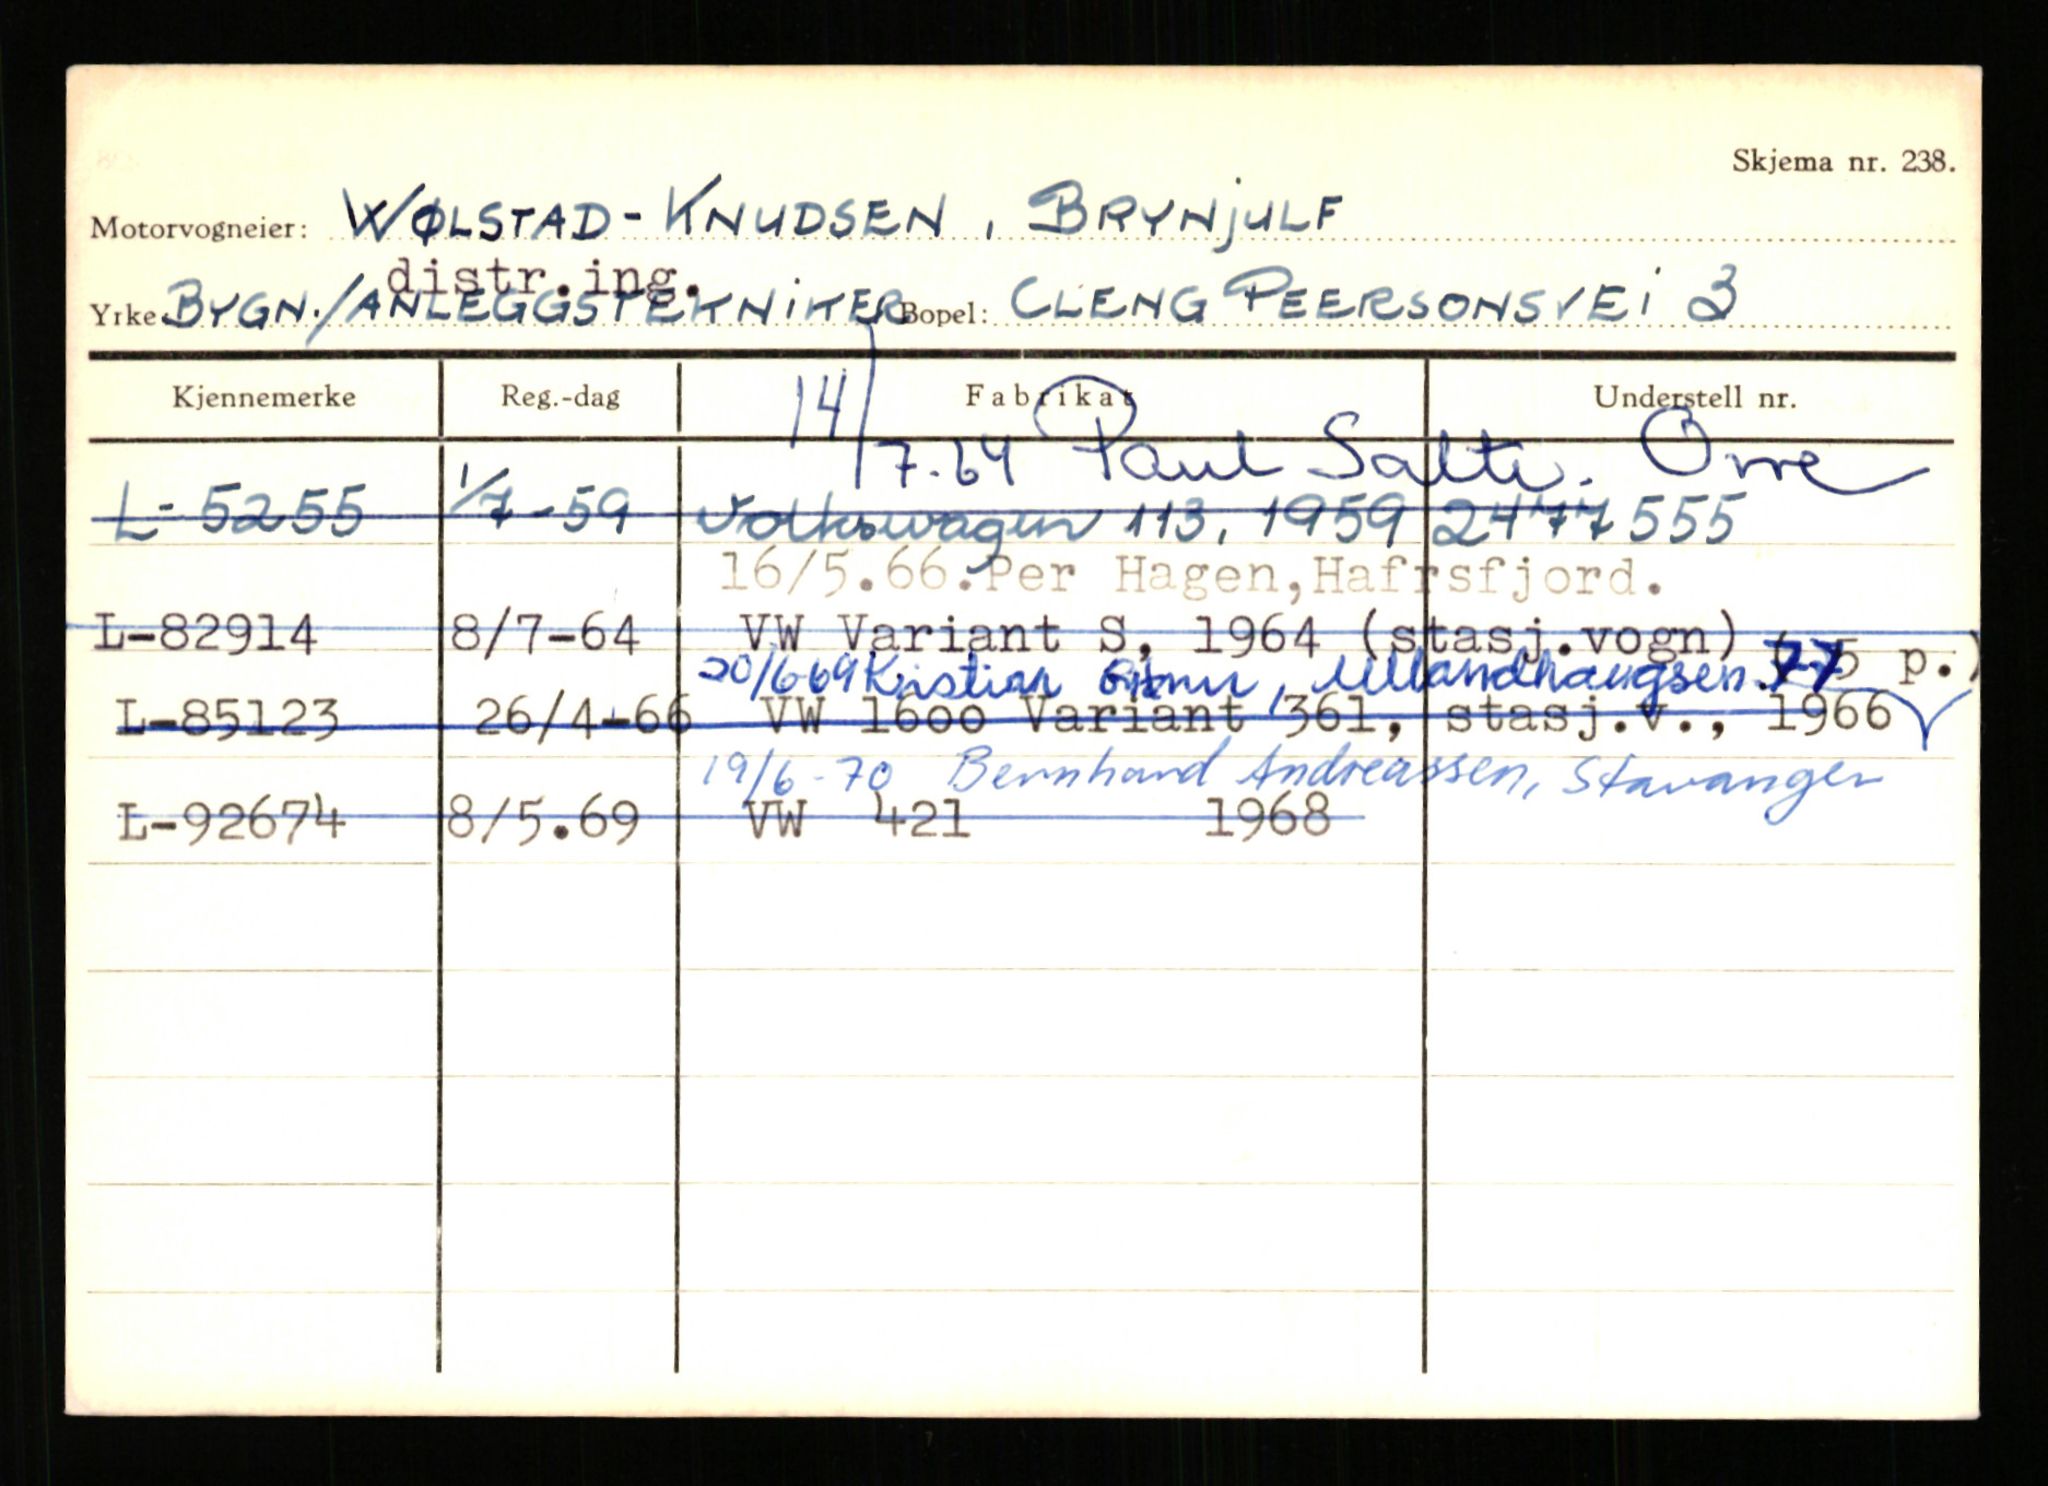 Skjema nr. 238.
Motorvogneier: WØLSTAD-KNUDSEN, BRYNJULF
distr.ing.
Yrke BYGN./ANLEGGSTEKNIKER Bopel: CLENG PEERSONSVEI 3
Kjennemerke Reg.-dag Fabrikat Understell nr.
14/7.64 Paul Salte. Orre
L-5255 1/7-59 Volkswagen 113, 1959 2477555
16/5.66.Per Hagen,Hafrsfjord.
L-82914 8/7-64 VW Variant S, 1964 (stasj.vogn) 5 p.)
20/6-69 Kristian Ullandhaugsen. 77
L-85123 26/4-66 VW 1600 Variant 361, stasj.v., 1966
19/6-70 Bernhard Andreassen, Stavanger
L-92674 8/5.69 VW 421 1968